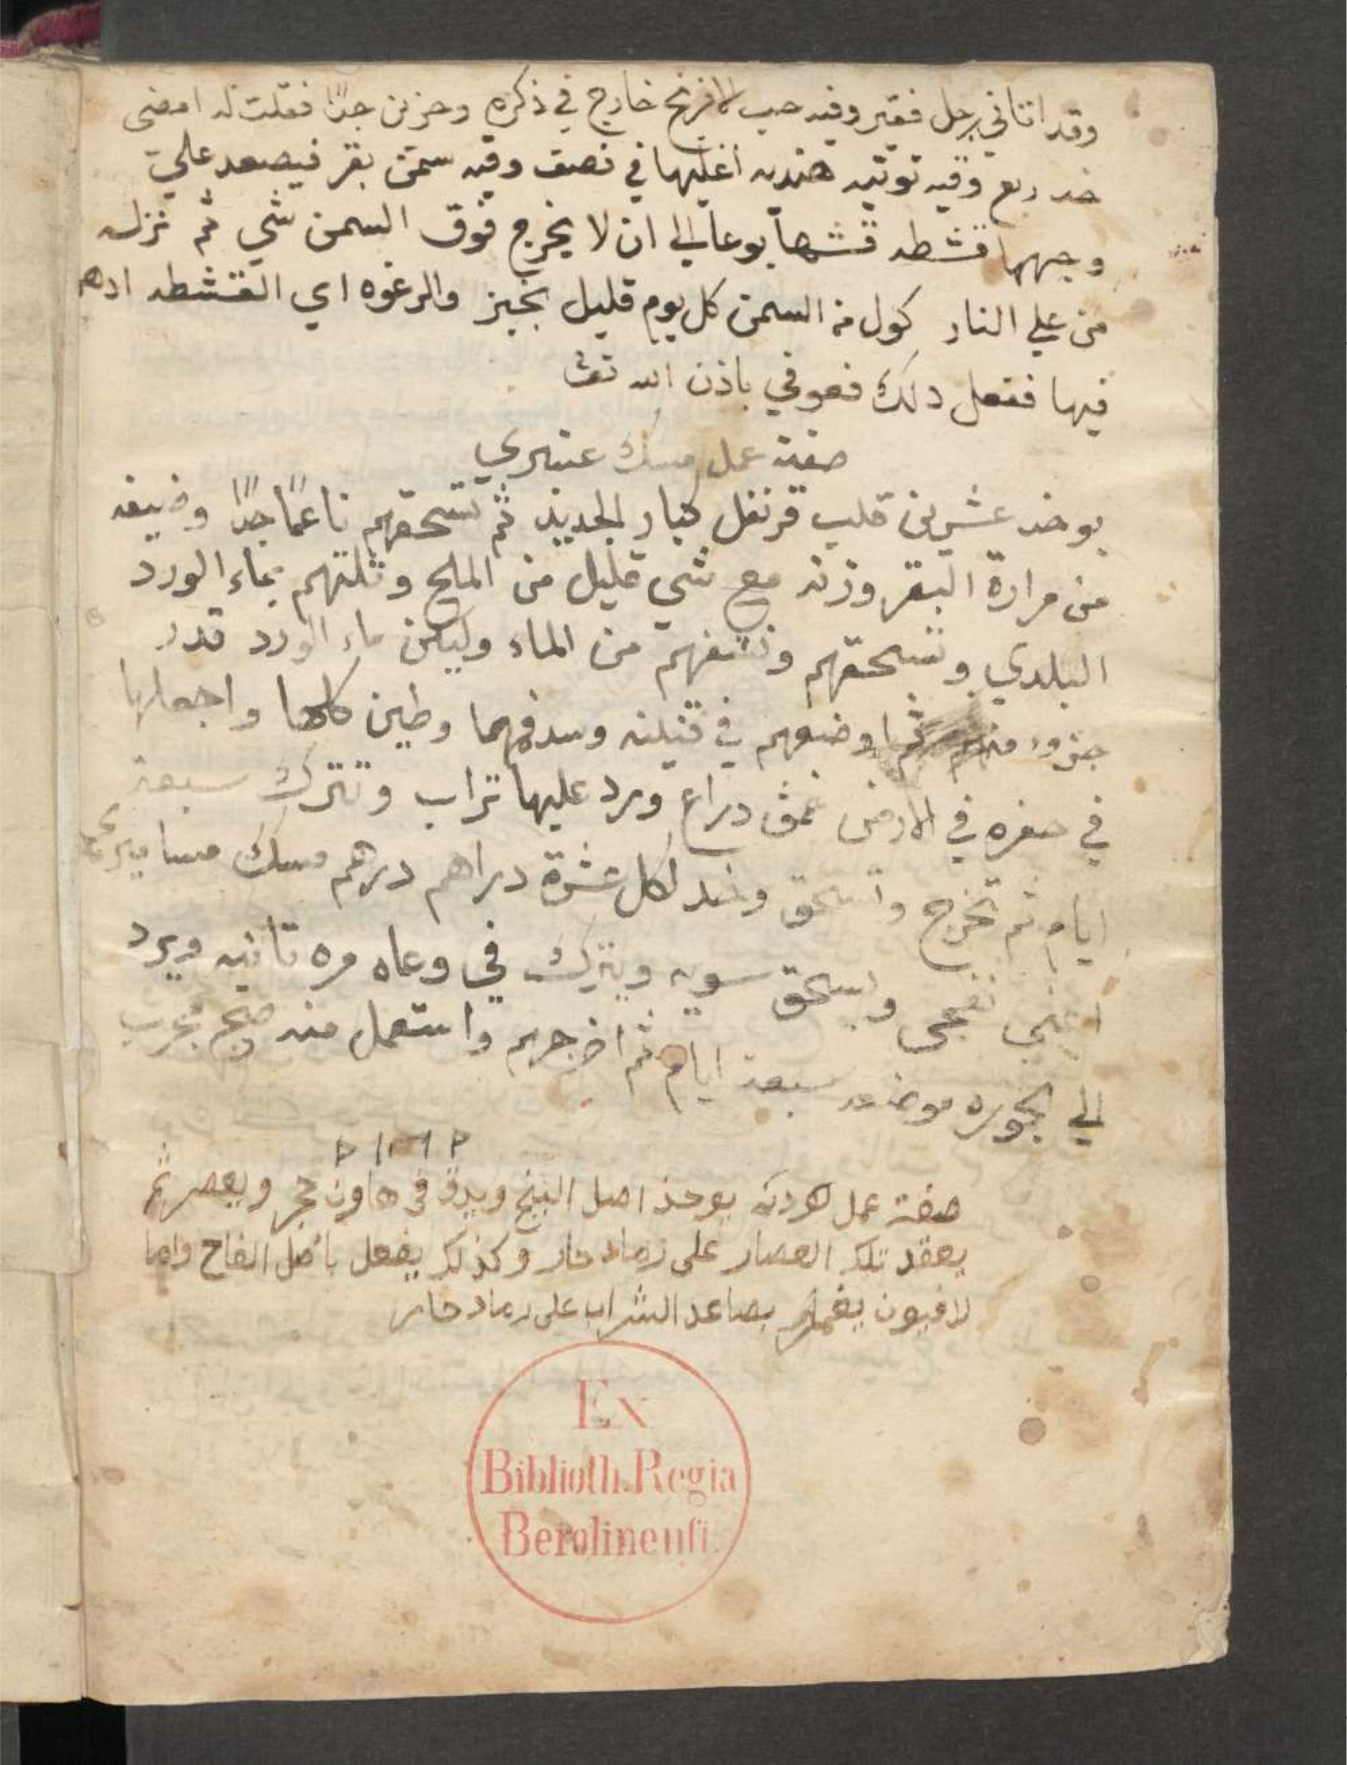 وقد اتاني رجل فقير وفيه حب الافرنج خارج في ذكره وحزين جدًا فقلت له امضى
خد ربع وقيه توتيه هنديه اغليها في نصف وقيه سمن بقر فيصعد علي
وجهها قشطه قشها بوعا الى ان لا يخرج فوق السمن شي ثم نزله
من علي النار كول من السمن كل يوم قليل بخبز والرغوه اي القشطه ادهن
فيها ففعل دلك فعوفي باذن الله تعا
صفة عمل مسك عنبري
يوخد عشرين قلب قرنفل كبار الجديد ثم تسحقهم ناعمًا جدًا وضيفه
من مرارة البقر وزنه مع شي قليل من الملح وتلتهم بماء الورد
البلدي وتسحقهم ونشفهم من الماء وليكن ماء الورد قدر
جزوء منهم ثم اوضعهم في قنينه وسد فمها وطين كلها واجعلها
في حفره في الارض غمق دراع ورد عليها تراب وتترك سبعة
ايام ثم تخرج وتسحق وخد لكل عشرة دراهم درهم مسك
اعني وبسحق سويه ويترك في وعاه مره تانيه ويرد
الي الجوره موضعه سبعة ايام ثم اخرجهم واستعمل منه صحيح مجرب
صفة عمل يوخذ اصل البنج ويدق في هاون حجر ويعصر ثم
يعقد تلك العصار على رماد حار وكذلك يفعل باصل الفاح واما
لافيون يفعل بصاعد الشراب على رماد حار
Ex
Biblioth. Regia
Berolinensi.